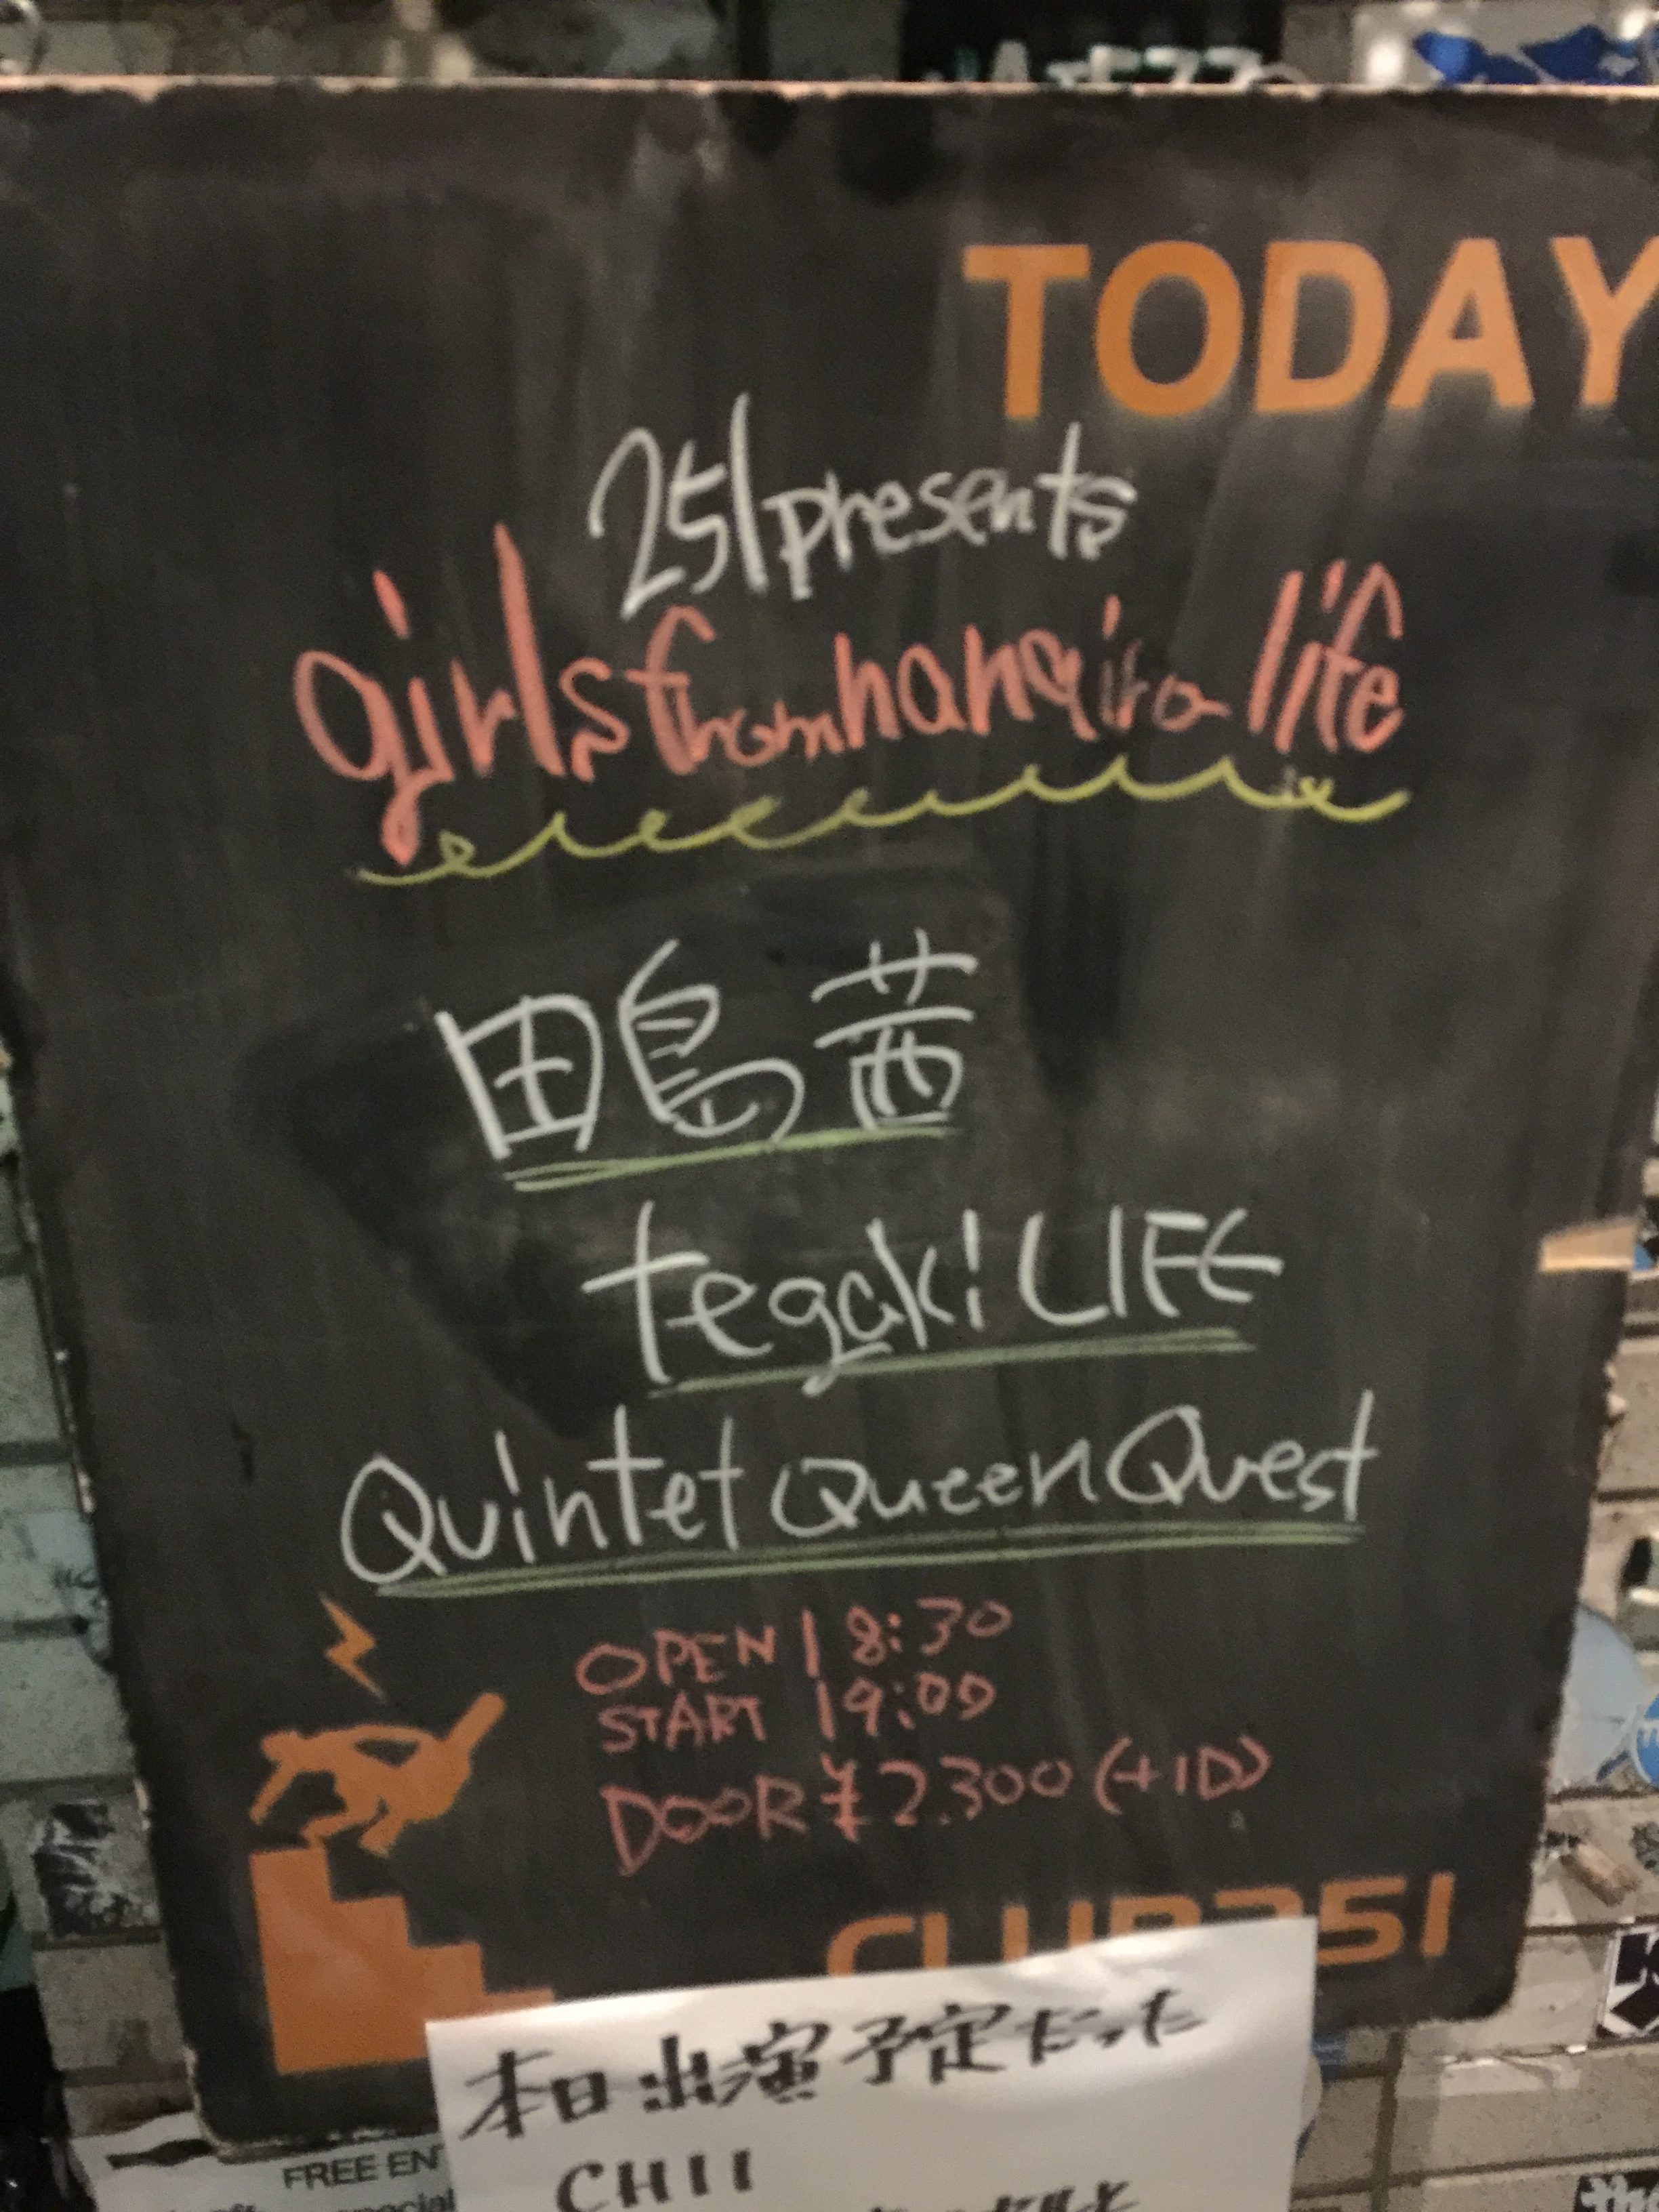 TODAY
251 presents
girls from hanairo life
田島茜
tegaki LIFE
Quintet Queen Quest
OPEN 18:30
START 19:00
DOOR ¥2.300 (+1D)
CLUB251
本日出演予定だった
CHII
FREE EN
special